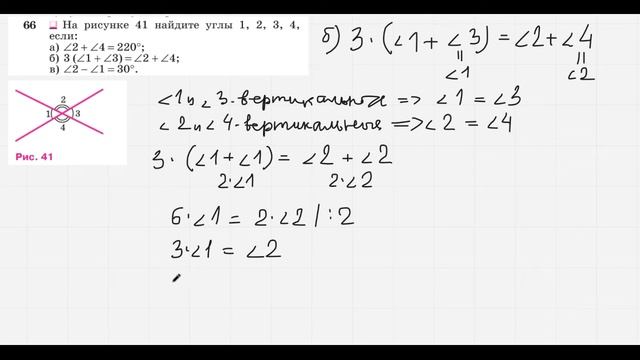 66 На рисунке 41 найдите углы 1, 2, 3, 4,
если:
а) ∠2 + ∠4 = 220°;
б) 3 (∠1 + ∠3) = ∠2 + ∠4;
в) ∠2 − ∠1 = 30°.
2
1 3
4
Рис. 41
б) 3 · (∠1 + ∠3) = ∠2 + ∠4
∠1 ∠2
∠1 и ∠3 - вертикальные => ∠1 = ∠3
∠2 и ∠4 - вертикальные => ∠2 = ∠4
3 · (∠1 + ∠1) = ∠2 + ∠2
2·∠1 2·∠2
6·∠1 = 2·∠2 | :2
3·∠1 = ∠2